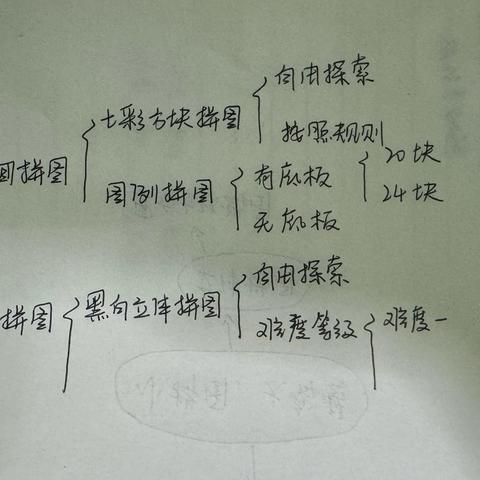 自由探索
七彩方块拼图
按照规则
20块
面拼图
有底板
图例拼图
24块
无底板
自由探索
黑白立体拼图
拼图
难度等级
难度一